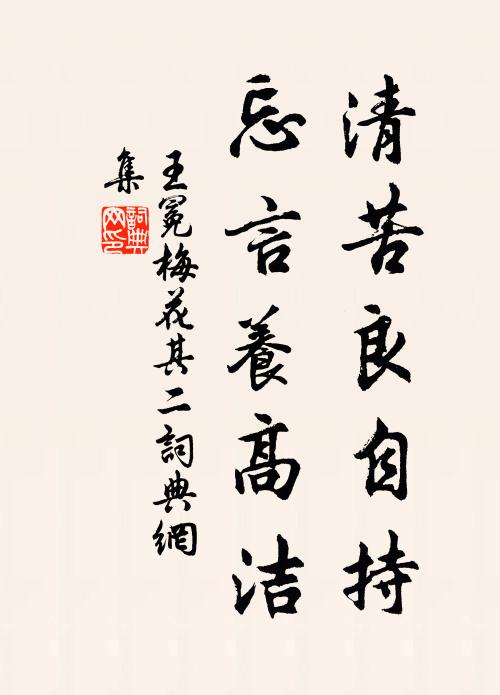 清苦良自持
忘言養高洁
王冕梅花其二詞典網
集
詞典网印